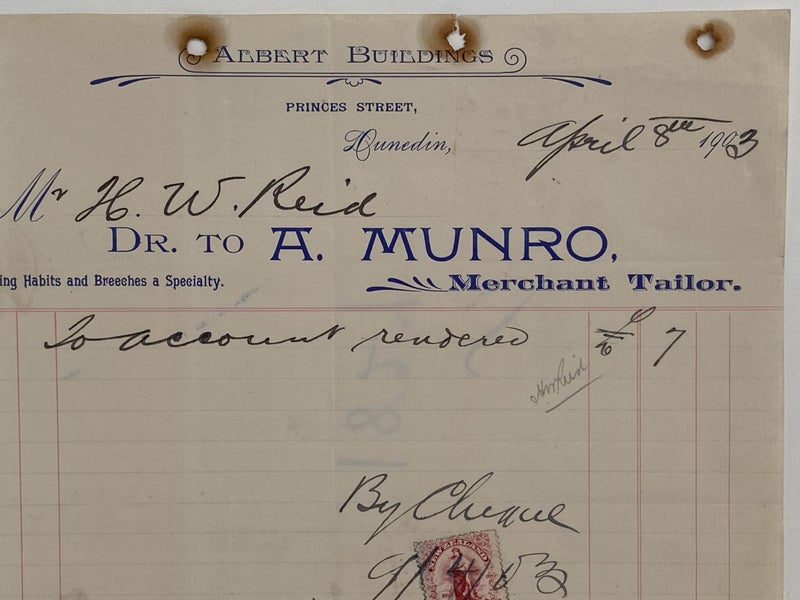 ALBERT BUILDINGS
PRINCES STREET,
Dunedin, April 8th 1903
Mr H. W. Reid
DR. TO A. MUNRO,
ing Habits and Breeches a Specialty. Merchant Tailor.
To account rendered £ 7
HWReid
By Cheque
NEW ZEALAND
9/4/03